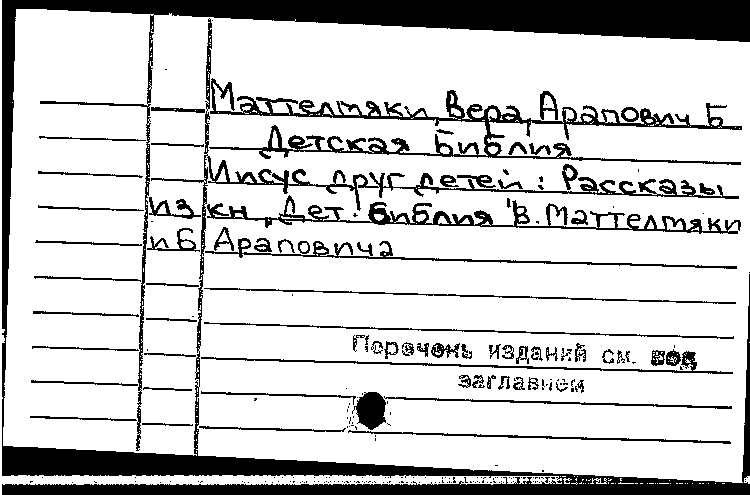 Маттелмяки, Вера, Арапович Б
Детская Библия
Иисус друг детей : Рассказы
из кн. Дет. Библия "В. Маттелмяки
и Б Араповича
Перечень изданий см. под
заглавием